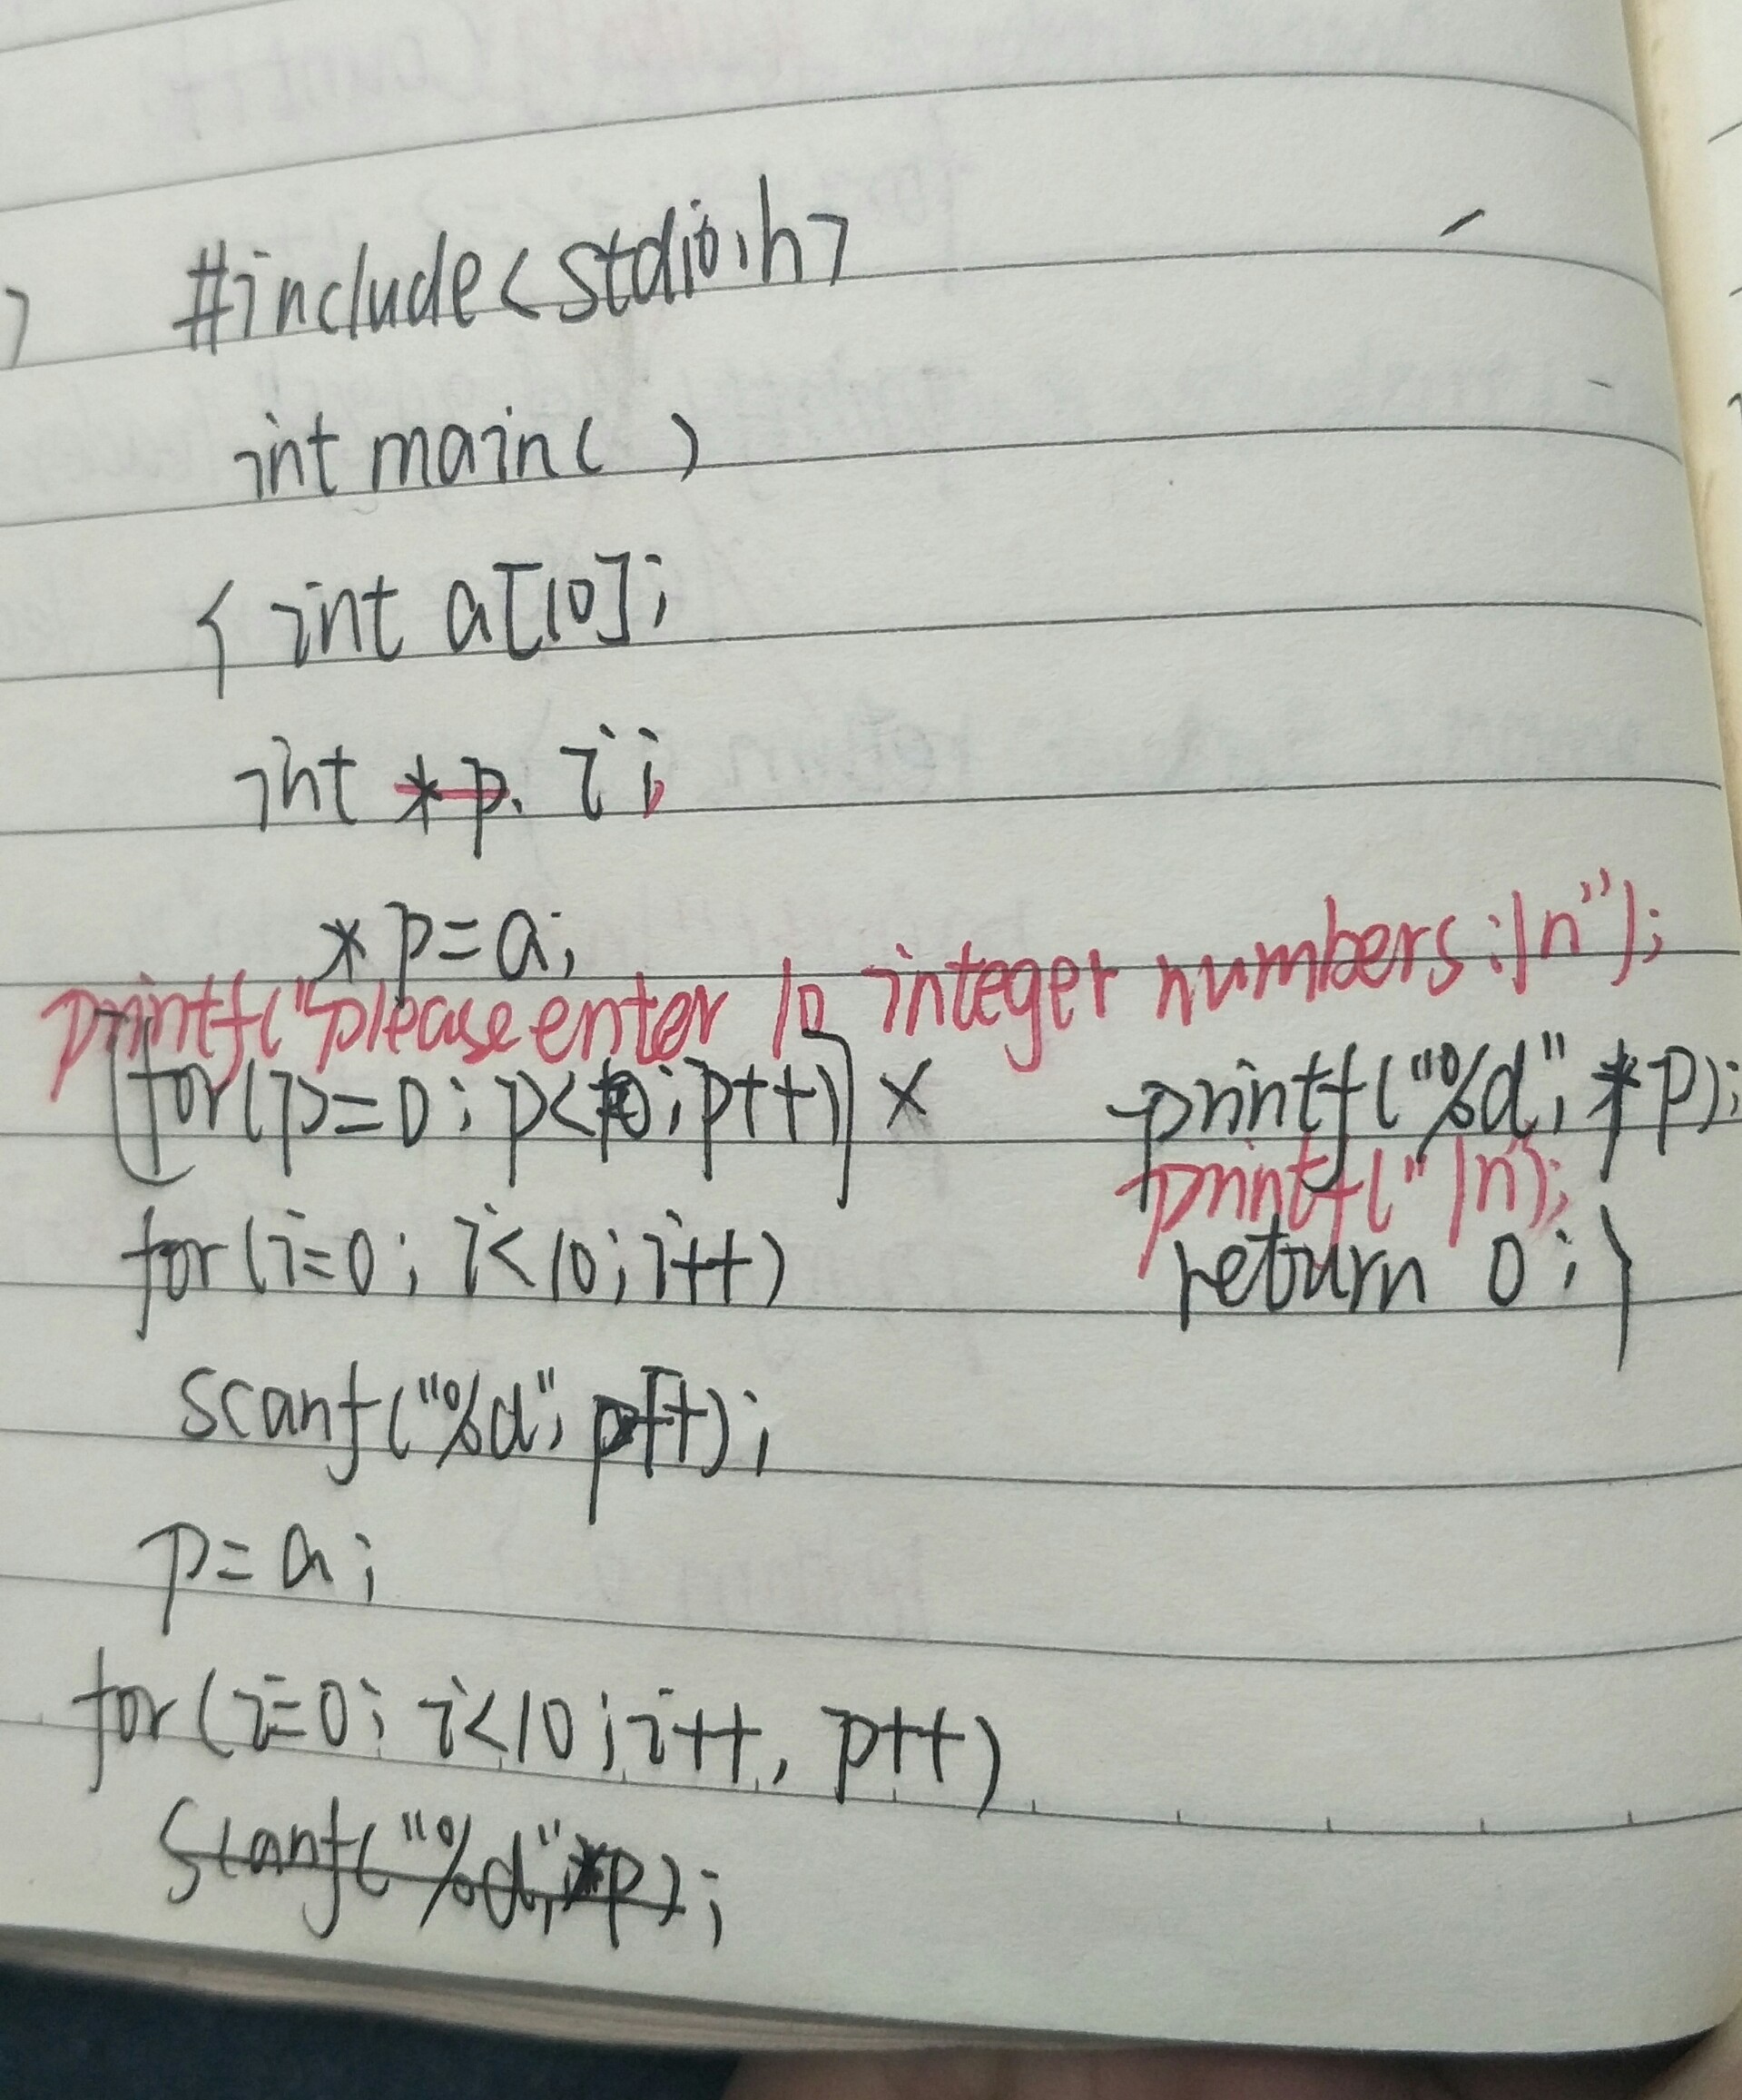 #include<stdio.h>
int main( )
{ int a[10];
int *p, i;
*p=a;
printf("please enter 10 integer numbers:\n");
[for(p=0; p<10; p++)] ×
for(i=0; i<10; i++)
scanf("%d", p++);
p=a;
for(i=0; i<10; i++, p++)
scanf("%d", *p);
printf("%d", *p);
printf("\n);
return 0;}